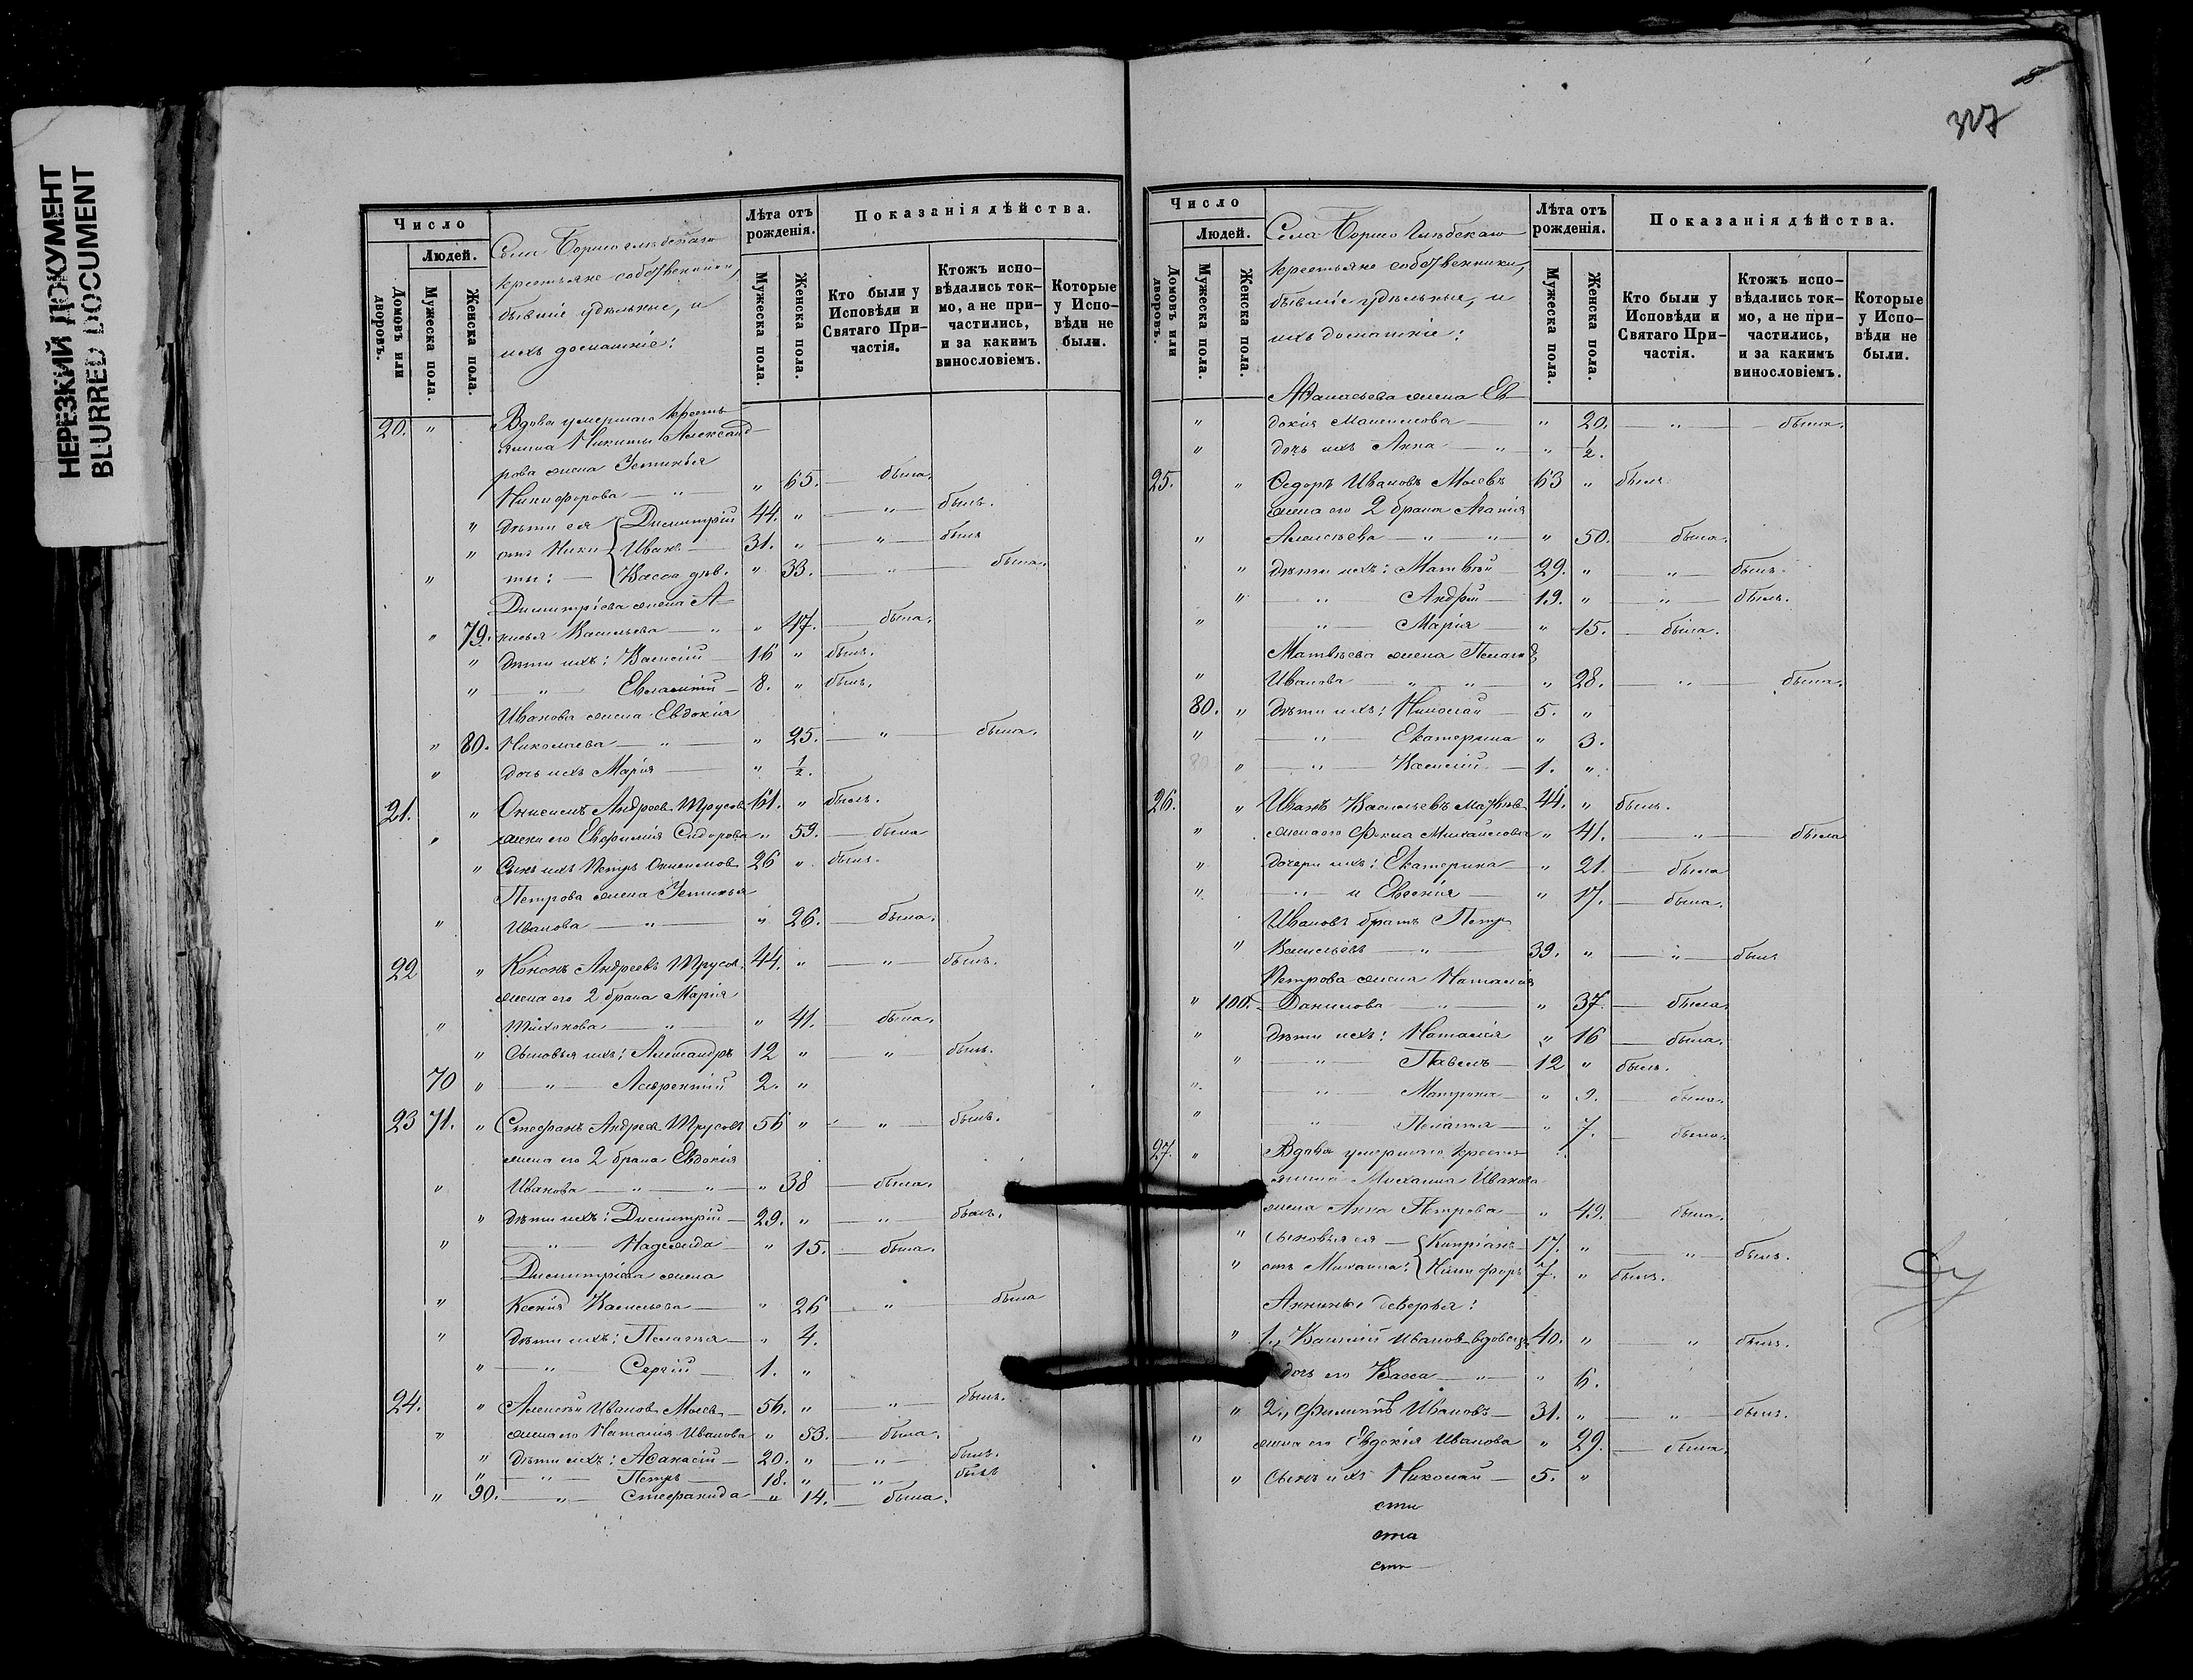 НЕРЕЗКИЙ ДОКУМЕНТ
BLURRED DOCUMENT
327
Число
Людей.
Домовъ или дворовъ.
Мужеска пола.
Женска пола.
Села Борисоглѣбскаго
крестьяне собственники,
бывшіе удѣльные, и
ихъ домашніе:
Лѣта отъ рожденія.
Мужеска пола.
Женска пола.
Показанія дѣйства.
Кто были у Исповѣди и Святаго Причастія.
Ктожъ исповѣдались токмо, а не причастились, и за какимъ винословіемъ.
Которые у Исповѣди не были.
20. " Вдова умершаго кресть-
янина Никиты Александ-
рова жена Устинья
Никифорова — " " 65. — была.
" дѣти ея Димитрій 44. " — " — былъ.
" отъ Ники- Иванъ — 31. " — " — былъ
" ты: — Васса дѣв. " 33. — " — была.
Димитріева жена А-
" 79. кисья Васильева — " " 47. — была.
" дѣти ихъ: Василій — 16 " былъ.
" — " — Евлампій — 8. " былъ.
Иванова жена Евдокія
" 80. Николаева — " — " 25. — " — была.
" дочь ихъ Марія — " ½.
21. " Онисимъ Андреев Трусов 61. " былъ.
" жена его Евфимія Сидорова " 59. — была
" Сынъ ихъ Петръ Онисимов 26 " былъ.
Петрова жена Устинья
" Иванова — " — " 26. — была.
22 " Кононъ Андреевъ Трусов. 44. " — " — былъ.
жена его 2 брака Марія
" Тихонова — " — " 41. — была.
" Сыновья ихъ: Александръ 12 " — " былъ.
70 " — " — Лаврентій 2. "
23 71. " Стефанъ Андреев Трусовъ 56 " — " — былъ.
жена его 2 брака Евдокія
" Иванова — " — " — " 38 — была.
" дѣти ихъ: Димитрій — 29. " — " — былъ.
" — " — Надежда — " 15. — была.
Димитріева жена
" Ксенія Васильева — " 26 — " — была
" дѣти ихъ: Пелагья — " 4.
" — " — Сергій — 1. "
24. " Алексѣй Иванов Молев — 56. " — " — былъ.
" жена его Наталія Иванова " 53. — была.
" дѣти ихъ: Аѳанасій — 20. " — " — былъ.
" — " — Петръ — 18. " — " — былъ
" 90. — " — Стефанида — " 14. — была.
Число
Людей.
Домовъ или дворовъ.
Мужеска пола.
Женска пола.
Села Борисо Глѣбскаго
крестьяне собственники,
бывшіе удѣльные, и
ихъ домашніе:
Лѣта отъ рожденія.
Мужеска пола.
Женска пола.
Показанія дѣйства.
Кто были у Исповѣди и Святаго Причастія.
Ктожъ исповѣдались токмо, а не причастились, и за какимъ винословіемъ.
Которые у Исповѣди не были.
Аѳанасьева жена Ев-
" докія Максимова — " 20. — " — была.
" дочь ихъ Анна — " — " ½.
25. " Ѳедоръ Ивановъ Молевъ 63 " былъ
жена его 2 брака Агапія
" Алексѣева — " — " — " 50. — была.
" дѣти ихъ: Матвѣй — 29. " — " — былъ.
" — " — Андрей — 19. " — " — былъ.
" — " — Марія — " 15. — была.
Матвѣева жена Пелагія
" Иванова — " — " — " 28. — " — была.
80. " дѣти ихъ: Николай — 5. "
" — " — Екатерина " 3.
" — " — Василій — 1. "
26. " Иванъ Васильевъ 44. " былъ.
" жена его Фекла Михайлова " 41. — " — была
" дочери ихъ: Екатерина — " 21. — была
" — " и Евгенія — " 17. — была.
Ивановъ братъ Петръ
" Васильевъ — " — 39. " — " — былъ
Петрова жена Наталія
" 100. Данилова — " 37. — была.
" дѣти ихъ: Наталія " 16 — была.
" — " — Павелъ — 12 " былъ.
" — " — Матрона — " 9. — была.
" " Пелагья — " 7. — была.
27. " Вдова умершаго кресть-
янина Михаила Иванова
жена Анна Петрова — " 49. — была.
" Сыновья ея — Кипріанъ — 17. " — " — былъ.
" отъ Михаила: Никифоръ 7. " былъ.
Аннины деверья:
" 1., Василій Иванов вдовецъ 40. " — " былъ.
дочь его Васса — " — " 6.
" 2., Филиппъ Ивановъ — 31. " — " — былъ.
" жена его Евдокія Иванова " 29. — была.
" Сынъ ихъ Николай — 5. "